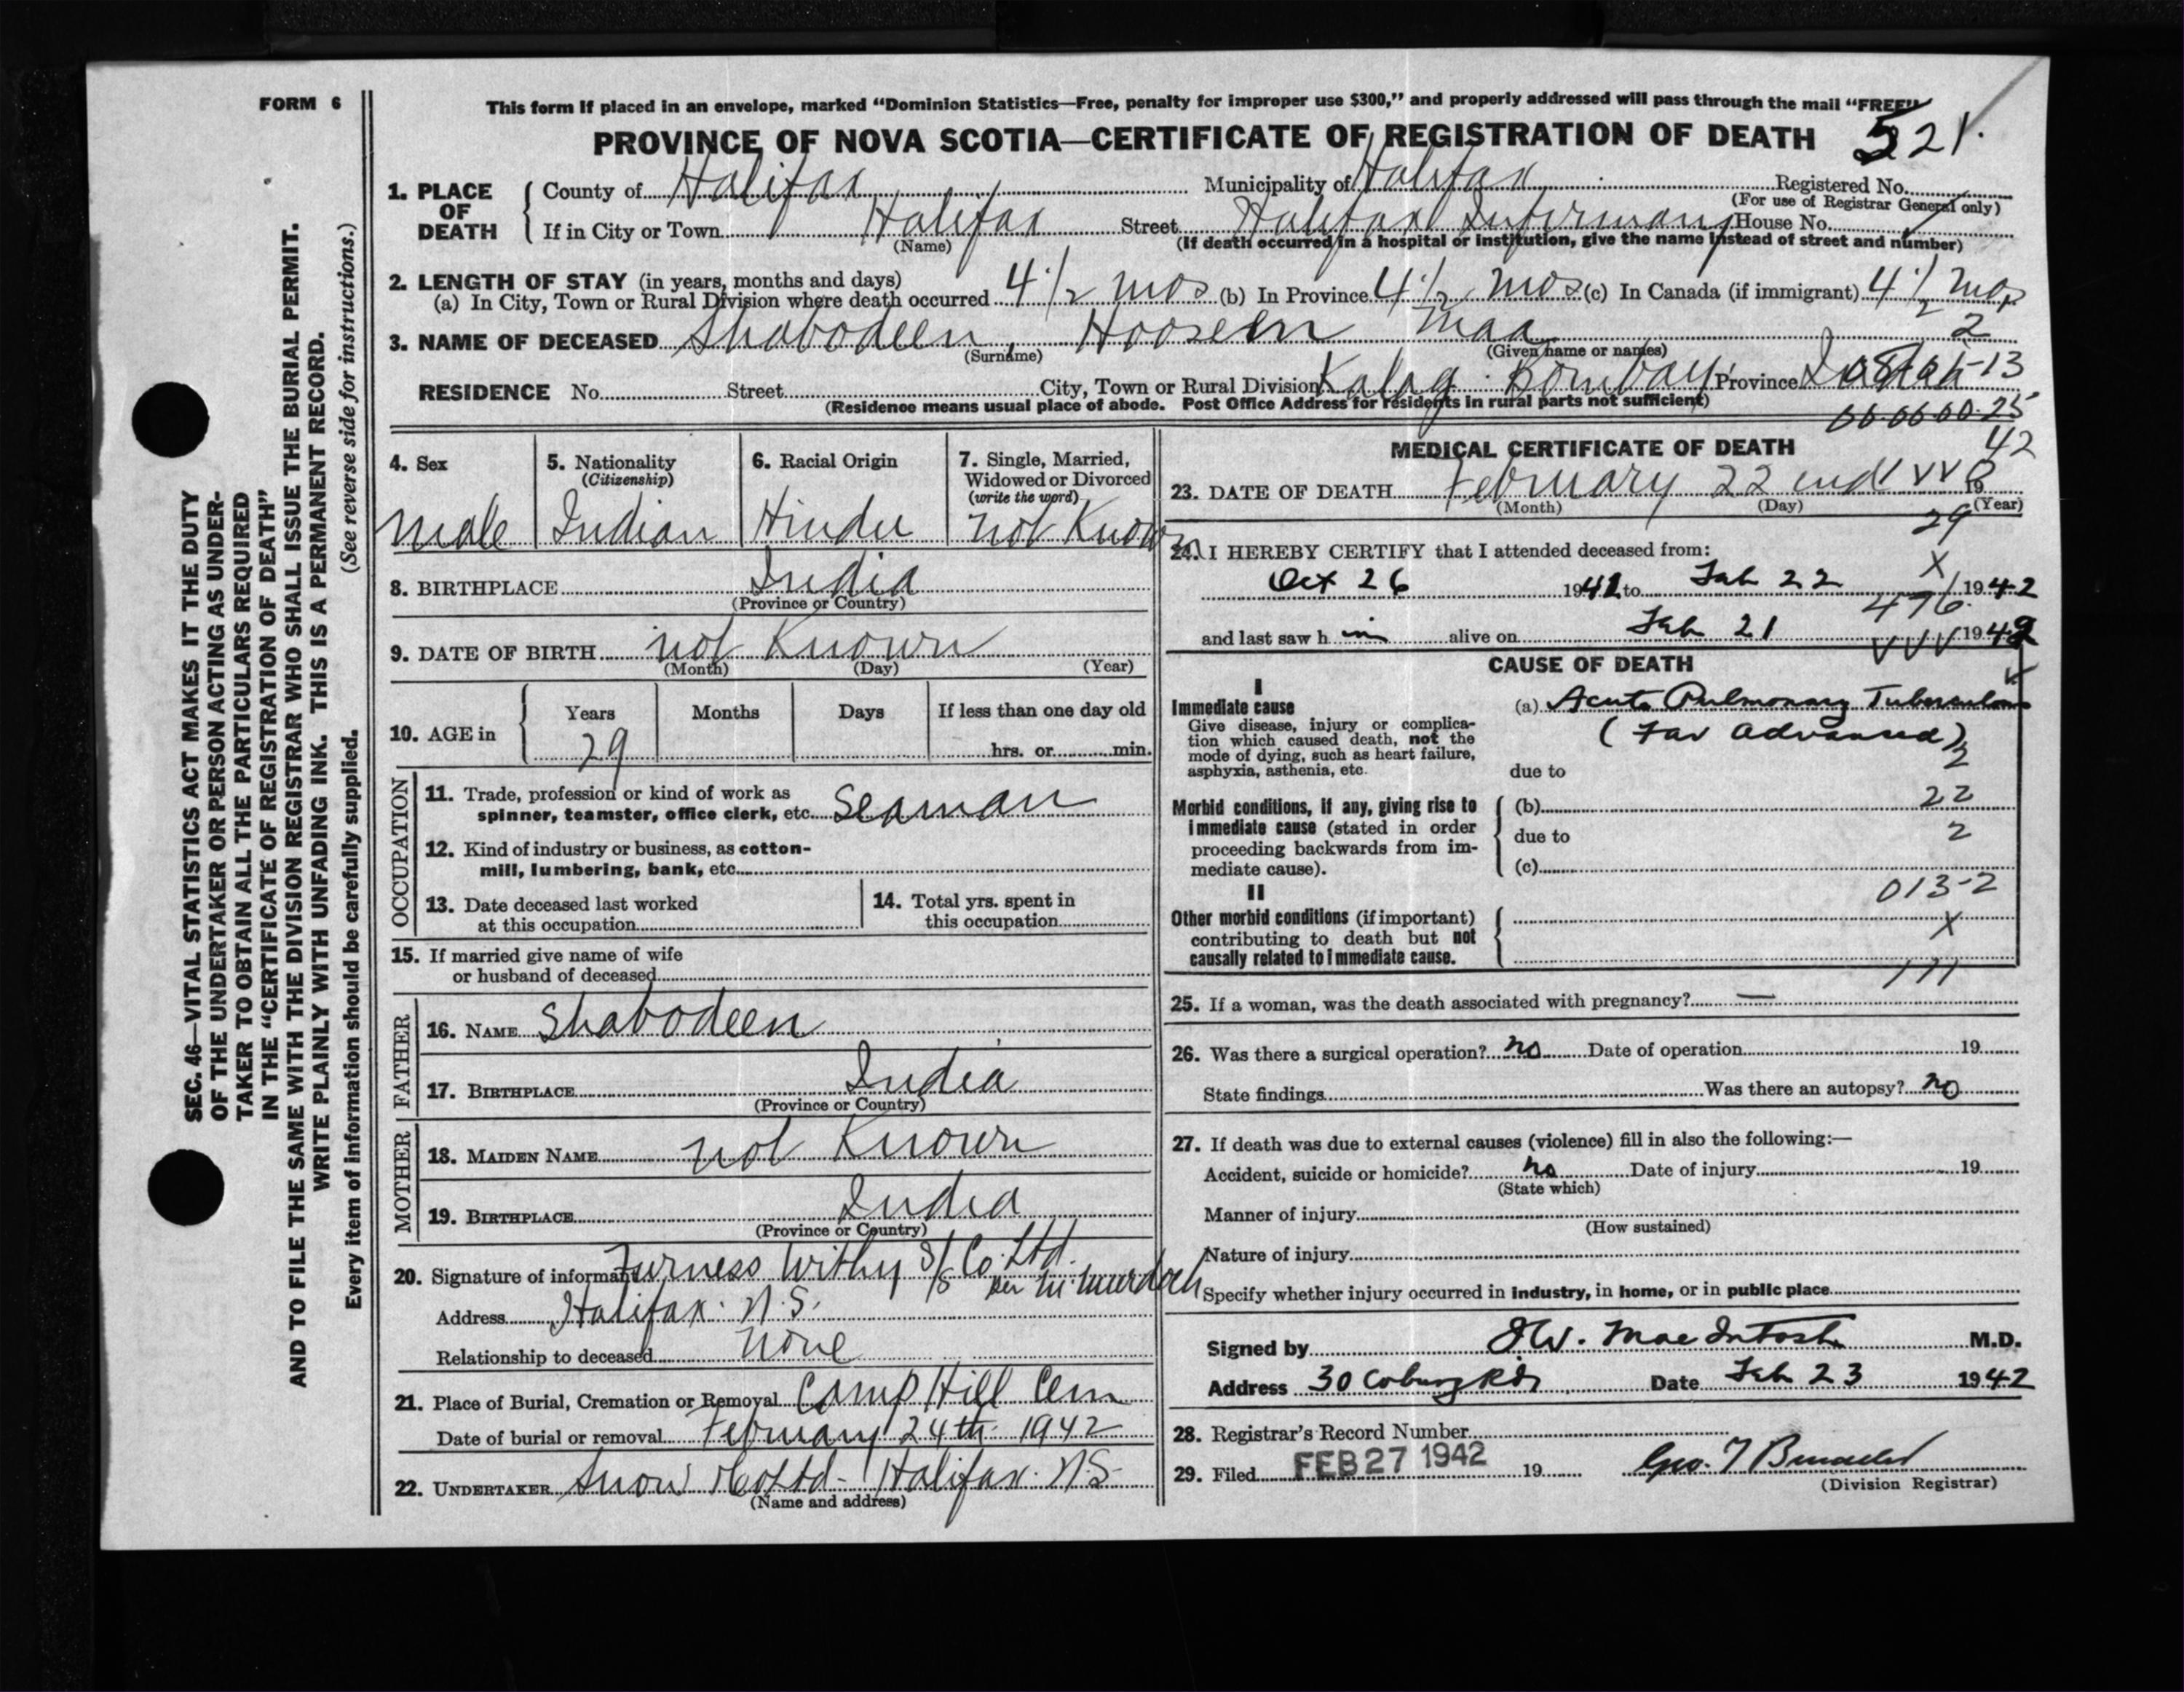 FORM 6
This form if placed in an envelope, marked "Dominion Statistics—Free, penalty for improper use $300," and properly addressed will pass through the mail "FREE"
PROVINCE OF NOVA SCOTIA—CERTIFICATE OF REGISTRATION OF DEATH
521.
SEC. 46—VITAL STATISTICS ACT MAKES IT THE DUTY
OF THE UNDERTAKER OR PERSON ACTING AS UNDER-
TAKER TO OBTAIN ALL THE PARTICULARS REQUIRED
IN THE "CERTIFICATE OF REGISTRATION OF DEATH"
AND TO FILE THE SAME WITH THE DIVISION REGISTRAR WHO SHALL ISSUE THE BURIAL PERMIT.
WRITE PLAINLY WITH UNFADING INK. THIS IS A PERMANENT RECORD.
Every item of information should be carefully supplied. (See reverse side for instructions.)
1. PLACE OF DEATH
County of Halifax Municipality of Halifax Registered No.
(For use of Registrar General only)
If in City or Town Halifax Street Halifax Infirmary House No.
(Name) (If death occurred in a hospital or institution, give the name instead of street and number)
2. LENGTH OF STAY (in years, months and days)
(a) In City, Town or Rural Division where death occurred 4 1/2 mos (b) In Province 4 1/2 mos (c) In Canada (if immigrant) 4 1/2 mos
3. NAME OF DECEASED Shabodeen, Hoosein Maa 2
(Surname) (Given name or names)
RESIDENCE No. Street City, Town or Rural Division Kalag Bombay Province India
(Residence means usual place of abode. Post Office Address for residents in rural parts not sufficient)
00.00.00.25
42
4. Sex
male
5. Nationality
(Citizenship)
Indian
6. Racial Origin
Hindu
7. Single, Married,
Widowed or Divorced
(write the word)
not Known
8. BIRTHPLACE India
(Province or Country)
9. DATE OF BIRTH not Known
(Month) (Day) (Year)
10. AGE in
Years Months Days If less than one day old
29 hrs. or min.
OCCUPATION
11. Trade, profession or kind of work as
spinner, teamster, office clerk, etc. Seaman
12. Kind of industry or business, as cotton-
mill, lumbering, bank, etc.
13. Date deceased last worked
at this occupation
14. Total yrs. spent in
this occupation
15. If married give name of wife
or husband of deceased
FATHER
16. NAME Shabodeen
17. BIRTHPLACE India
(Province or Country)
MOTHER
18. MAIDEN NAME not Known
19. BIRTHPLACE India
(Province or Country)
20. Signature of informant Furness Withy S/S Co. Ltd.
per M. Murdoch
Address Halifax. N.S.
Relationship to deceased None
21. Place of Burial, Cremation or Removal Camp Hill Cem
Date of burial or removal February 24th 1942
22. UNDERTAKER Snow & Co Ltd - Halifax. N.S
(Name and address)
MEDICAL CERTIFICATE OF DEATH
23. DATE OF DEATH February 22nd 19
(Month) (Day) (Year)
29
24. I HEREBY CERTIFY that I attended deceased from:
X
Oct 26 1941 to Feb 22 1942
476
and last saw h im alive on Feb 21 1942
CAUSE OF DEATH
I
Immediate cause
Give disease, injury or complica-
tion which caused death, not the
mode of dying, such as heart failure,
asphyxia, asthenia, etc.
(a) Acute Pulmonary Tuberculosis
(Far Advanced)
2
due to
Morbid conditions, if any, giving rise to
immediate cause (stated in order
proceeding backwards from im-
mediate cause).
(b) 22
due to 2
(c)
013-2
II
Other morbid conditions (if important)
contributing to death but not
causally related to immediate cause.
X
111
25. If a woman, was the death associated with pregnancy? —
26. Was there a surgical operation? no Date of operation 19
State findings Was there an autopsy? no
27. If death was due to external causes (violence) fill in also the following:—
Accident, suicide or homicide? no Date of injury 19
(State which)
Manner of injury
(How sustained)
Nature of injury
Specify whether injury occurred in industry, in home, or in public place
Signed by MacIntosh M.D.
Address 30 Coburg Rd. Date Feb 23 1942
28. Registrar's Record Number
29. Filed FEB 27 1942 19 Geo.
(Division Registrar)